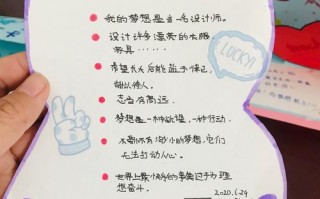 我的梦想是当一名设计师。
设计许多漂亮的衣服，
家具……
希望长大后能
志当存高远.
梦想是一种欲望，一种行动.
不要怀有渺小的梦想，它们
无法打动人心。
世界上最快乐的事莫过于为理
想奋斗。
LUCKY!
2020.6.24